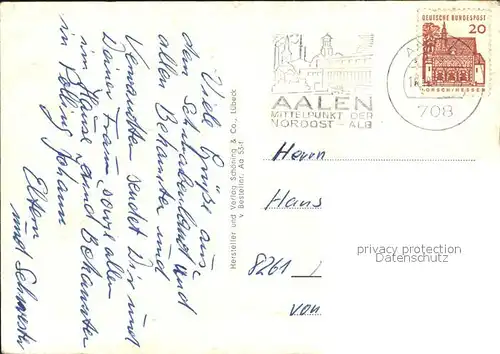 Viele Grüße aus
dem Schwabenland und
allen Bekannten und
Verwandten sendet Dir und
Deiner Frau sowie allen
im Hause und Bekannten
in Johann
Eltern
und Schwester
Hersteller und Verlag Schöning & Co., Lübeck
v. Besteller: Aa 55 f
AALEN
MITTELPUNKT DER
NORDOST – ALB
DEUTSCHE BUNDESPOST
20
LORSCH/HESSEN
708
Herrn
Hans
privacy protection
Datenschutz
8261
von